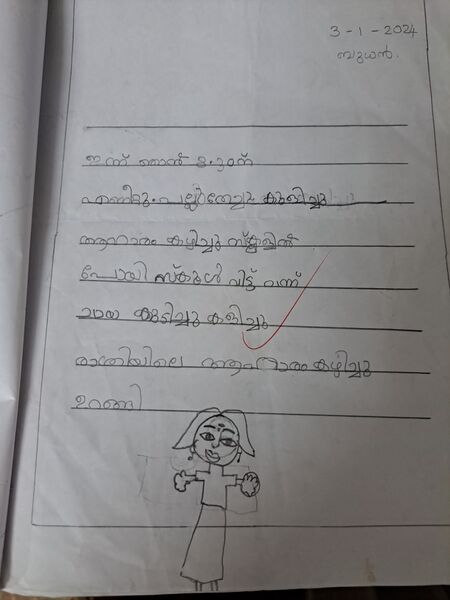 3-1-2024
ബുധൻ.
ഇന്ന് ഞാൻ 8.30ന്
എണീറ്റു. പല്ലുതേച്ചു കുളിച്ചു
ആഹാരം കഴിച്ചു സ്കൂളിൽ
പോയി സ്കൂൾ വിട്ട് വന്ന്
ചായ കുടിച്ചു കളിച്ചു
രാത്രിയിലെ ആഹാരം കഴിച്ചു
ഉറങ്ങി